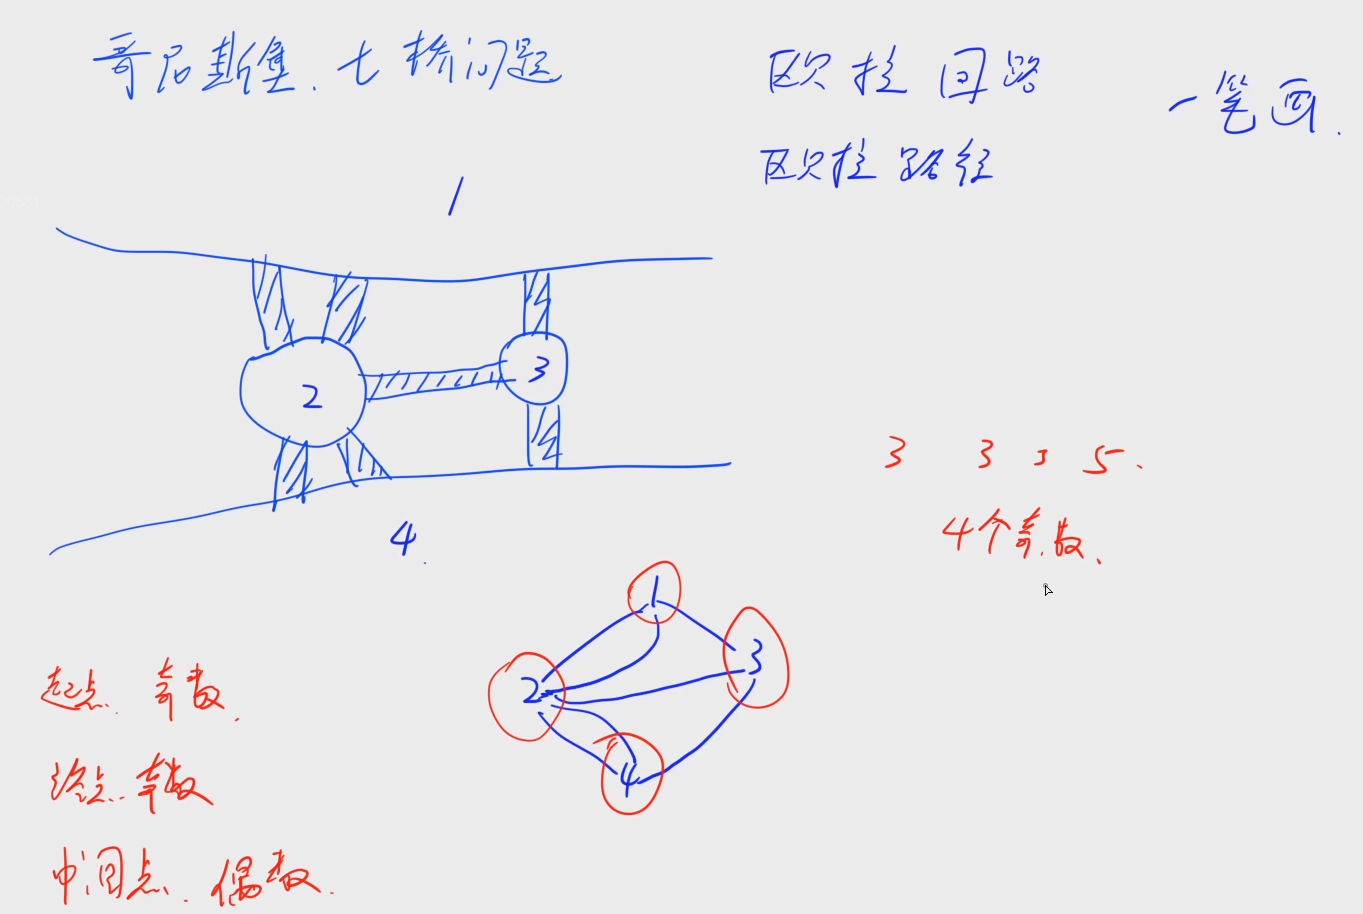 哥尼斯堡、七桥问题
欧拉回路
一笔画.
欧拉路径
1
2
3
4.
3 3 3 5.
4个奇数、
1
2
3
4
起点、奇数.
终点、奇数
中间点、偶数.